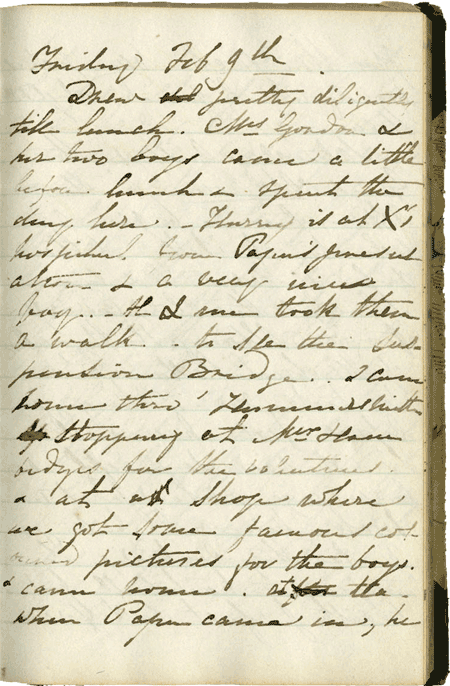 Friday Feb 9th
Drew pretty diligently
till lunch. Mrs Gordon &
her two boys came a little
before lunch & spent the
day here. - Harry is at Xt's
hospital from Papa's present
ation & a very nice
boy. - H & me took them
a walk - to see the Sus-
pension Bridge.. & came
home thro' Hammersmith
stopping at Mrs
for the
& at a shop where
we got some famous col-
oured pictures for the boys.
& came home. at tea.
when Papa came in, he